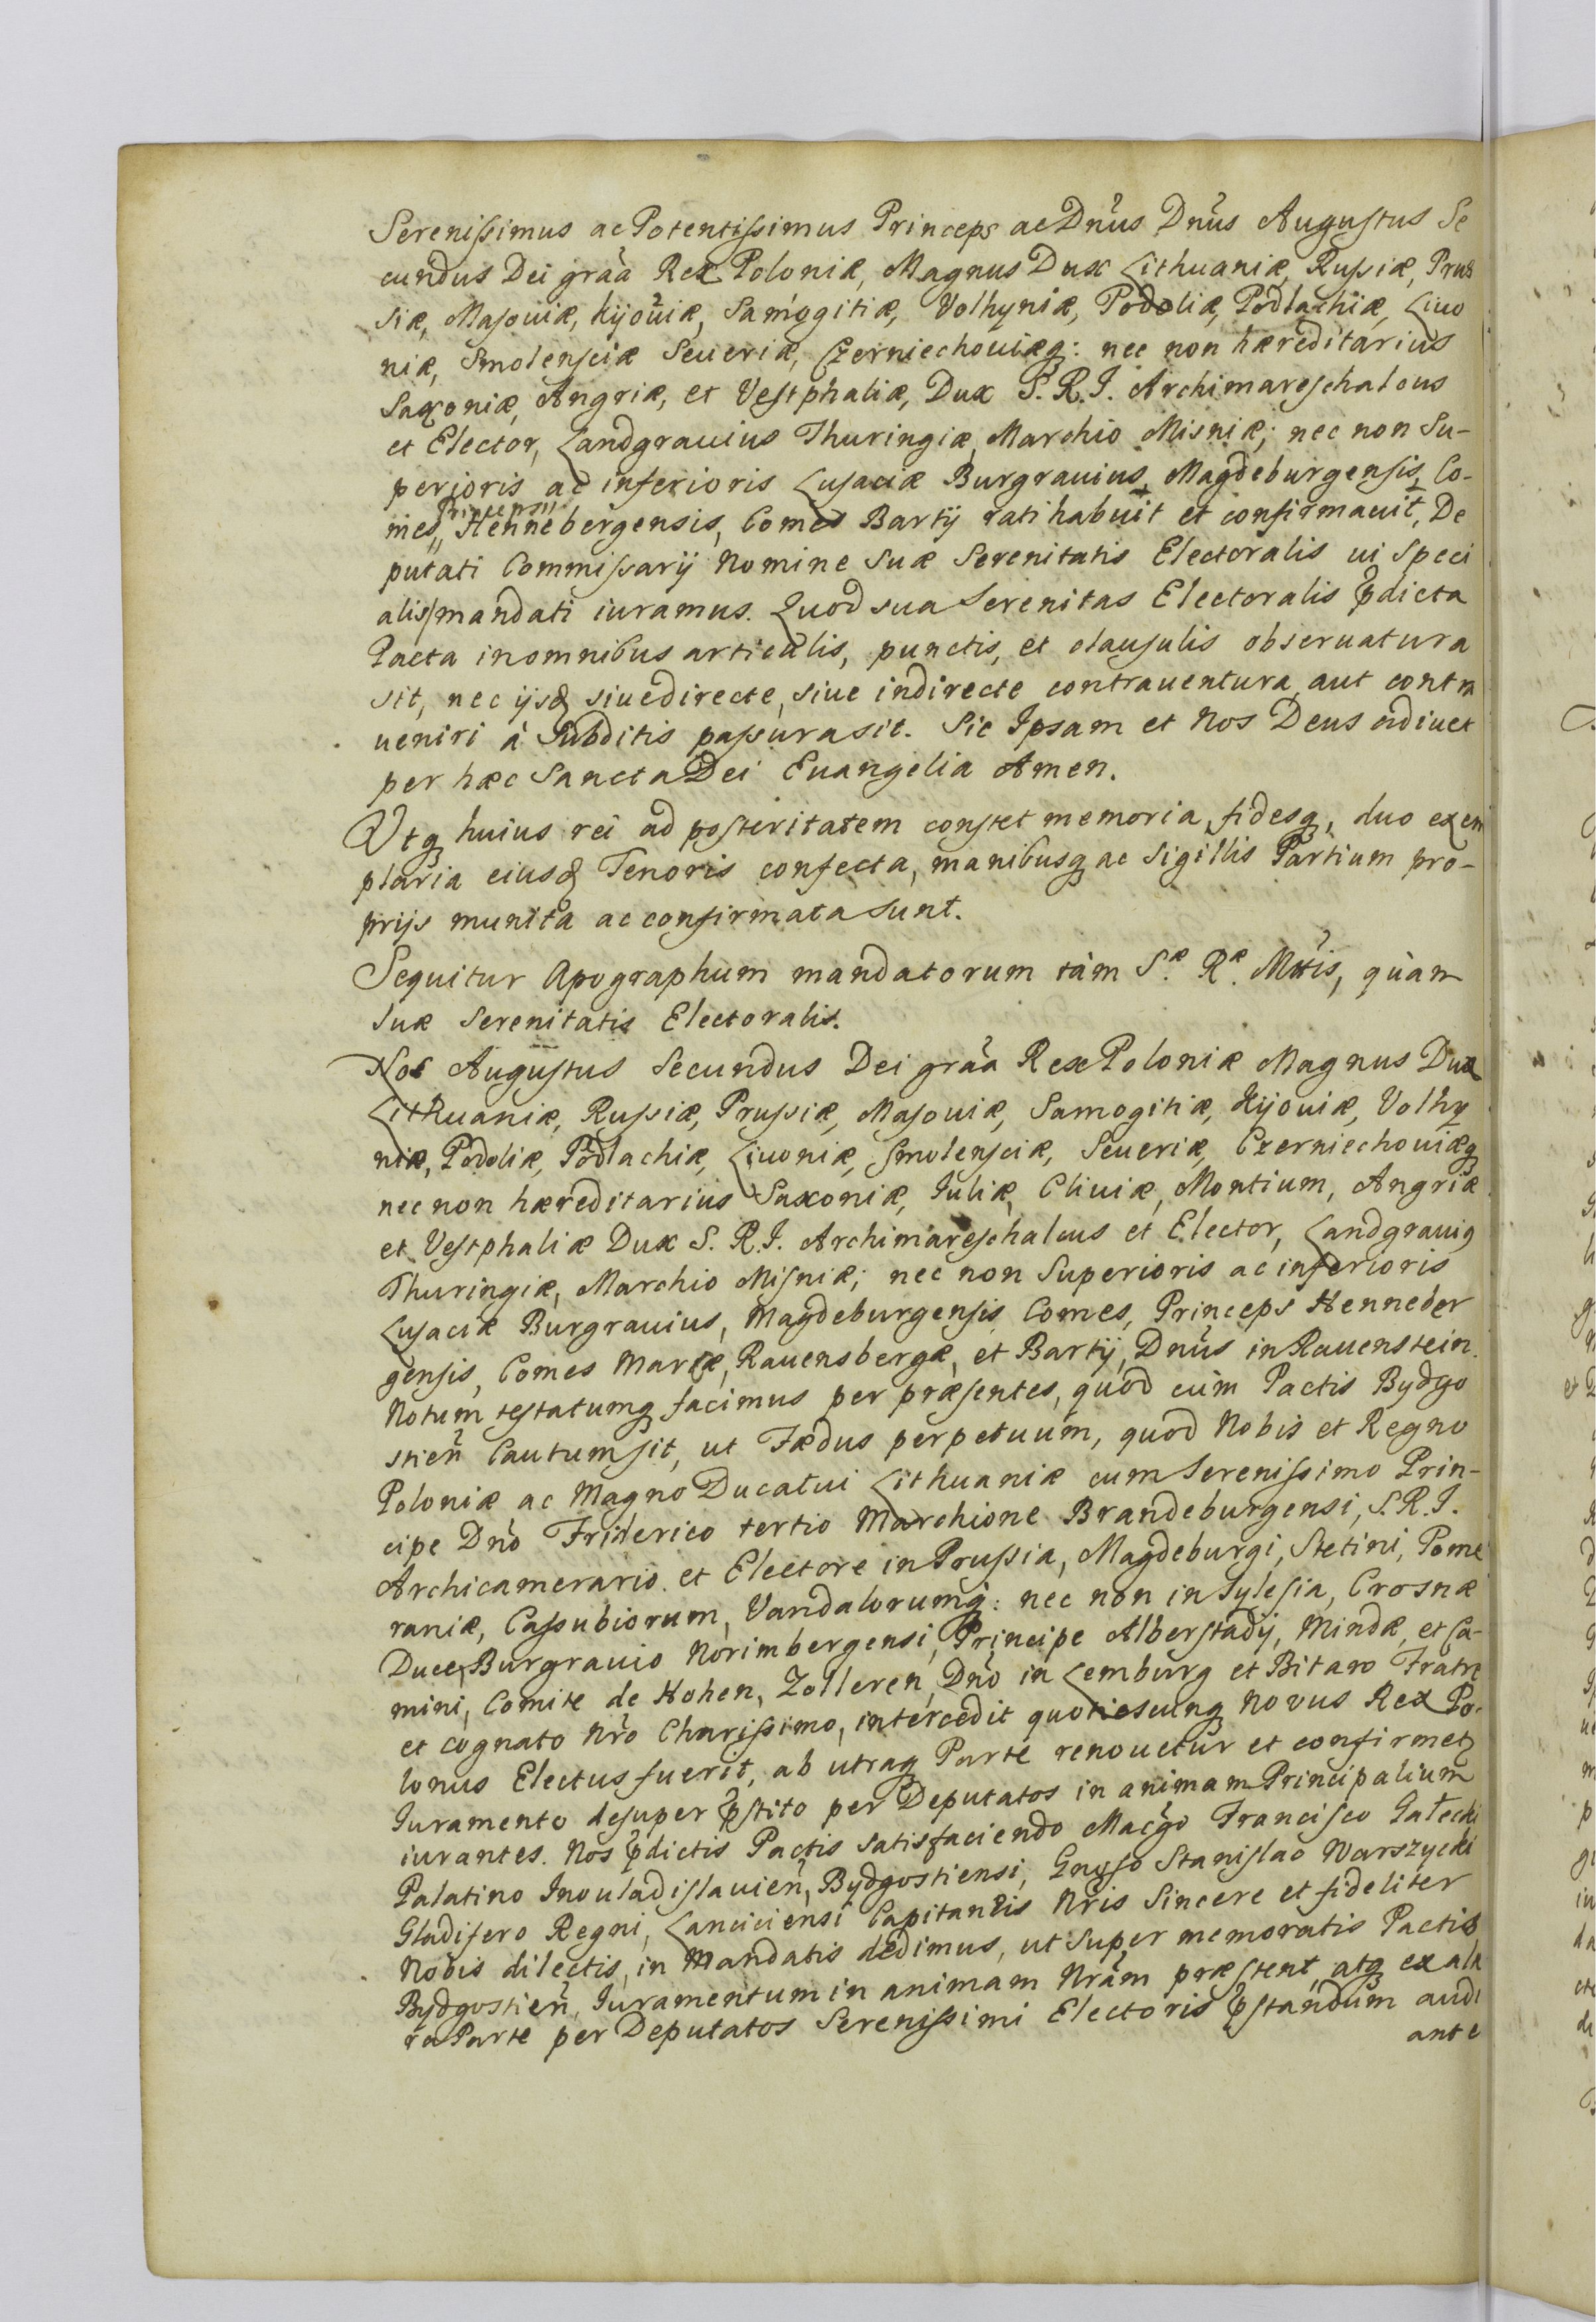 Serenissimus ac Potentissimus Princeps ac Dnus Dnus Augustus Se
cundus Dei graa Rex Poloniæ, Magnus Dux Lithuaniæ, Russiæ, Prus
siæ, Masouiæ, Kijouiæ, Samogitiæ, Volhyniæ, Podoliæ, Podlachiæ, Liuo
niæ, Smolensciæ Seueriæ, Czerniechouiæq: nec non hæreditarius
Saxoniæ, Angriæ, et Vestphaliæ, Dux S. R. I. Archimareschalcus
et Elector, Landgrauius Thuringiæ, Marchio Misniæ; nec non Su-
perioris ac inferioris Lusaciæ Burgrauius, Magdeburgensis, Co-
mes, Princeps Hennebergensis, Comes Bartij ratihabuit et confirmauit, De
putati Commissarij Nomine Suæ Serenitatis Electoralis ui speci
alis mandati iuramus. Quod sua Serenitas Electoralis pdicta
Pacta in omnibus articulis, punctis, et clausulis obseruatura
sit, nec ijsd siue directe, siue indirecte contrauentura, aut contra
ueniri à Subditis passura sit. Sic Ipsam et Nos Deus adiuet
per hæc Sancta Dei Euangelia Amen.
Vtq huius rei ad posteritatem constet memoria, fidesq, duo exem
plaria eiusd Tenoris confecta, manibusq ac Sigillis Partium pro-
prijs munita ac confirmata sunt.
Sequitur Apographum mandatorum tàm S.æ R.æ Mttis, quàm
Suæ Serenitatis Electoralis.
Nos Augustus Secundus Dei graa Rex Poloniæ Magnus Dux
Lithuaniæ, Russiæ, Prussiæ, Masouiæ, Samogitiæ, Kijouiæ, Volhy
niæ, Podoliæ, Podlachiæ, Liuoniæ, Smolensciæ, Seueriæ, Czerniechouiæq
nec non hæreditarius Saxoniæ, Iuliæ, Cliuiæ, Montium, Angriæ
et Vestphaliæ Dux S. R. I. Archimareschalcus et Elector, Landgrauiq
Thuringiæ, Marchio Misniæ; nec non Superioris ac inferioris
Lusaciæ Burgrauius, Magdeburgensis Comes, Princeps Henneber
gensis, Comes Marcæ, Rauensbergæ, et Bartij, Dnus in Rauenstein.
Notum testatumq facimus per præsentes, quod cum Pactis Bydgo
stien Cautum sit, ut Fædus perpetuum, quod Nobis et Regno
Poloniæ ac Magno Ducatui Lithuaniæ cum Serenissimo Prin-
cipe Dno Friderico tertio Marchione Brandeburgensi, S. R. I.
Archicamerario et Electore in Prussia, Magdeburgi, Stetini, Pome
raniæ, Cassubiorum, Vandalorumq: nec non in Sylesia, Crosnæ
Duce, Burgrauio Norimbergensi, Principe Alberstadij, Mindæ, et Ca-
mini, Comite de Hohen, Zolleren, Dno in Lemburg et Bitaw Fratre
et cognato Nro Charissimo, intercedit quotiescunq novus Rex Po-
lonus Electus fuerit, ab utraq Parte renouetur et confirmet
Iuramento desuper pstito per Deputatos in animam Principalium
iurantes. Nos pdictis Pactis satisfaciendo Macgo Francisco Gałecki
Palatino Inouladislauien, Bydgostiensi, Gnoso Stanislao Warszycki
Gladifero Regni, Lanciciensi Capitaneis Nris Sincere et fideliter
Nobis dilectis, in Mandatis dedimus, ut super memoratis Pactis
Bydgostien, Iuramentum in animam Nram præstent, atq ex alte
ra Parte per Deputatos Serenissimi Electoris pstandum audi
ant e